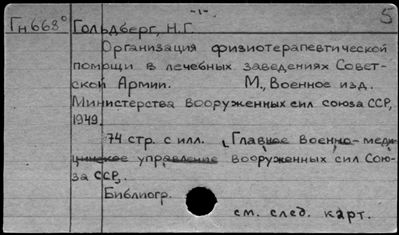 -1-
5
Гн668° Гольдберг, Н.Г.
Организация физиотерапевтической
помощи в лечебных заведениях Совет-
ской Армии. М., Военное изд.
Министерства вооруженных сил союза ССР,
1949.
74 стр. с илл. (Главное военно-меди-
цинское управление вооруженных сил Сою-
за ССР).
Библиогр.
см. след. карт.